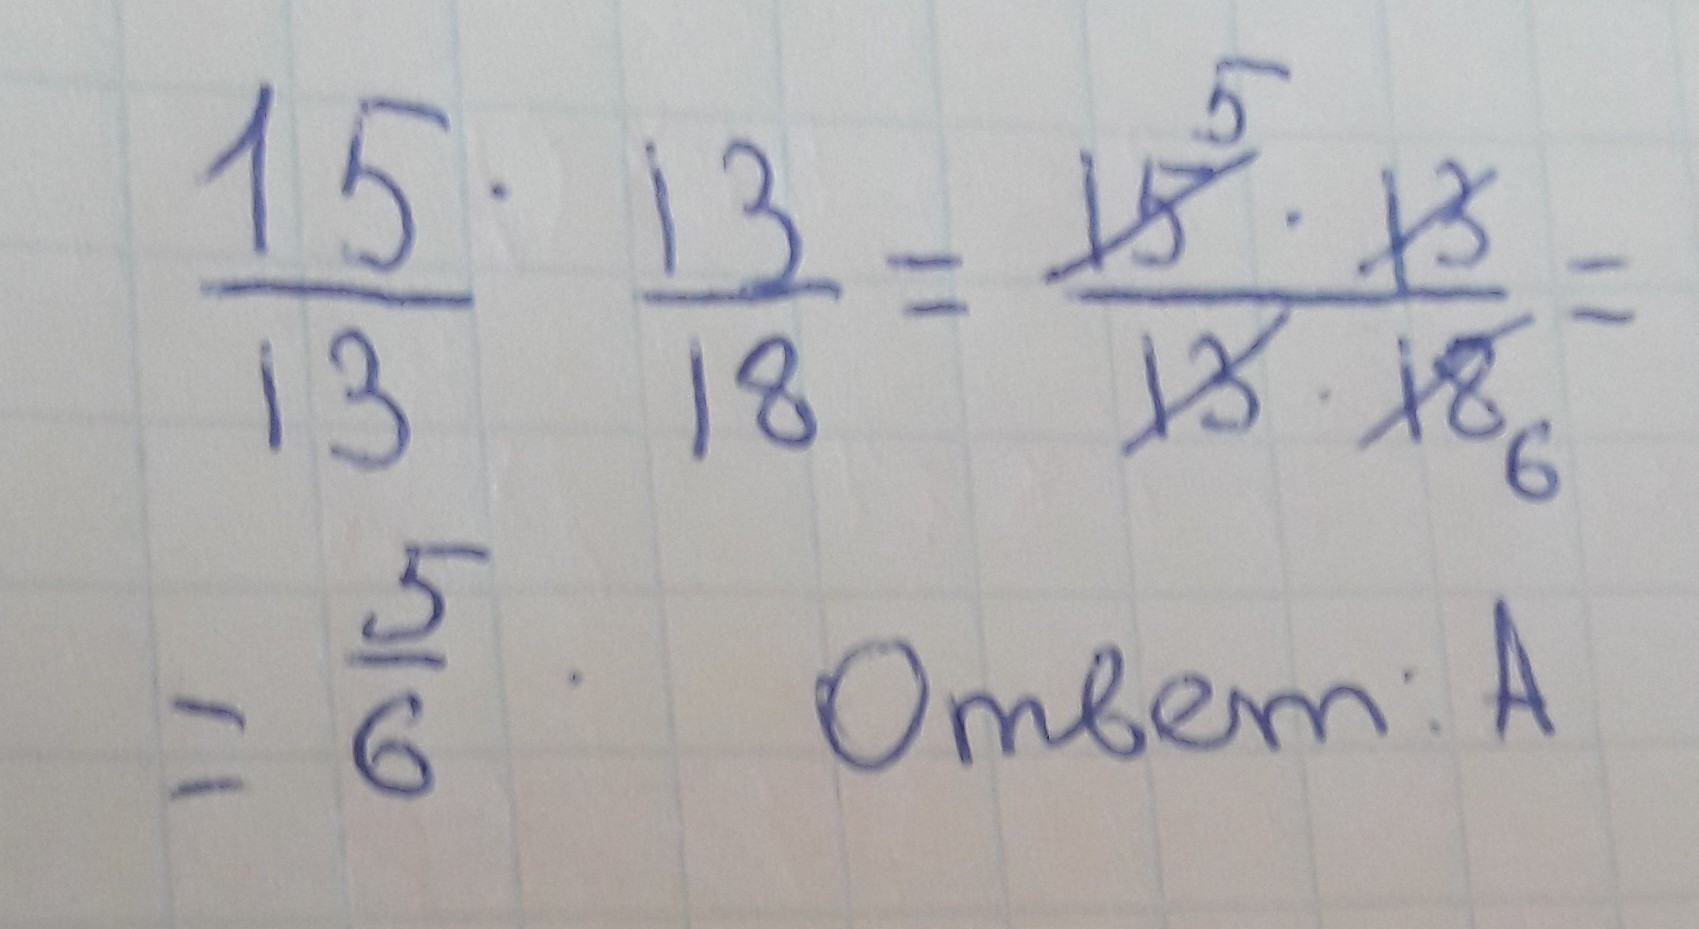 15/13 · 13/18 = 15 5 · 13 / 13 · 18 6 =
= 5/6 . Ответ: А